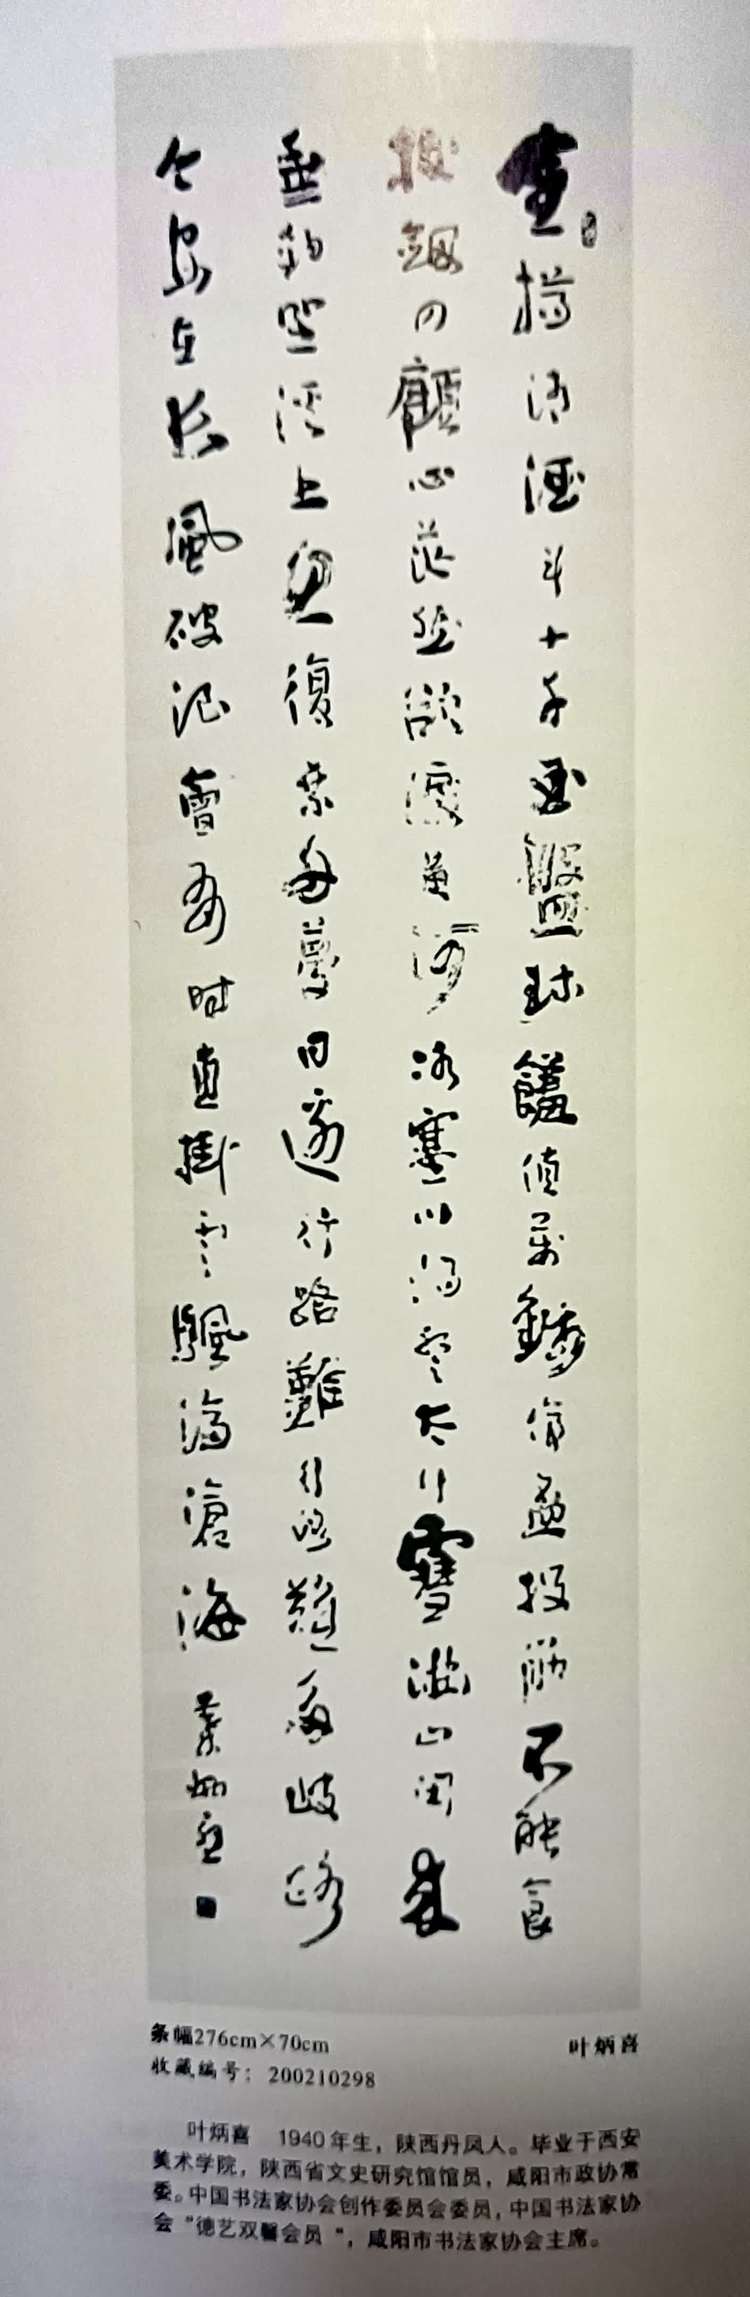 金樽清酒斗十千玉盤珍饈値萬錢停盃投筯不能食
拔劍四顧心茫然欲渡黃河冰塞川將登太行雪滿山閑來
垂釣碧溪上忽復乘舟夢日邊行路難行路難多歧路
今安在長風破浪會有時直掛雲颿濟滄海 葉炳喜
条幅276cm×70cm
叶炳喜
收藏编号：200210298
叶炳喜 1940年生，陕西丹凤人。毕业于西安
美术学院，陕西省文史研究馆馆员，咸阳市政协常
委。中国书法家协会创作委员会委员，中国书法家协
会“德艺双馨会员”，咸阳市书法家协会主席。